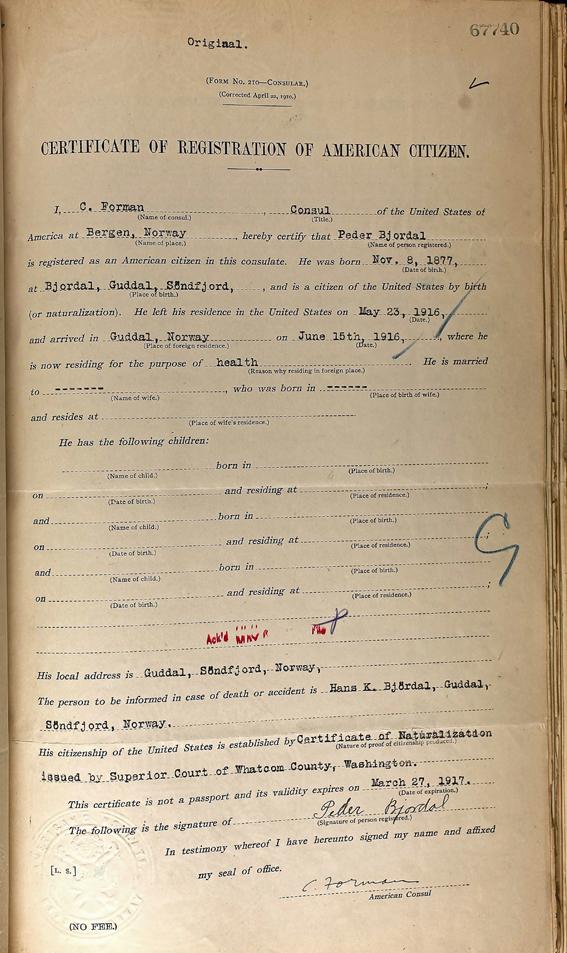 67740
Original.
(FORM NO. 210—CONSULAR.)
(Corrected April 22, 1910.)
CERTIFICATE OF REGISTRATION OF AMERICAN CITIZEN.
I, C. Forman, Consul of the United States of
(Name of consul.) (Title.)
America at Bergen, Norway, hereby certify that Peder Bjordal
(Name of place.) (Name of person registered.)
is registered as an American citizen in this consulate. He was born Nov. 8, 1877,
(Date of birth.)
at Bjordal, Guddal, Söndfjord, and is a citizen of the United States by birth
(Place of birth.)
(or naturalization). He left his residence in the United States on May 23, 1916,
(Date.)
and arrived in Guddal, Norway on June 15th, 1916, where he
(Place of foreign residence.) (Date.)
is now residing for the purpose of health. He is married
(Reason why residing in foreign place.)
to -------, who was born in ------
(Name of wife.) (Place of birth of wife.)
and resides at
(Place of wife's residence.)
He has the following children:
born in
(Name of child.) (Place of birth.)
on and residing at ;
(Date of birth.) (Place of residence.)
and born in
(Name of child.) (Place of birth.)
on and residing at ;
(Date of birth.) (Place of residence.)
and born in
(Name of child.) (Place of birth.)
on and residing at ;
(Date of birth.) (Place of residence.)
Ack'd
His local address is Guddal, Söndfjord, Norway,
The person to be informed in case of death or accident is Hans K. Björdal, Guddal,
Söndfjord, Norway.
His citizenship of the United States is established by Certificate of Naturalization
(Nature of proof of citizenship produced.)
issued by Superior Court of Whatcom County, Washington.
This certificate is not a passport and its validity expires on March 27, 1917.
(Date of expiration.)
The following is the signature of Peder Bjordal
(Signature of person registered.)
In testimony whereof I have hereunto signed my name and affixed
[L. S.] my seal of office.
C. Forman
American Consul
(NO FEE.)